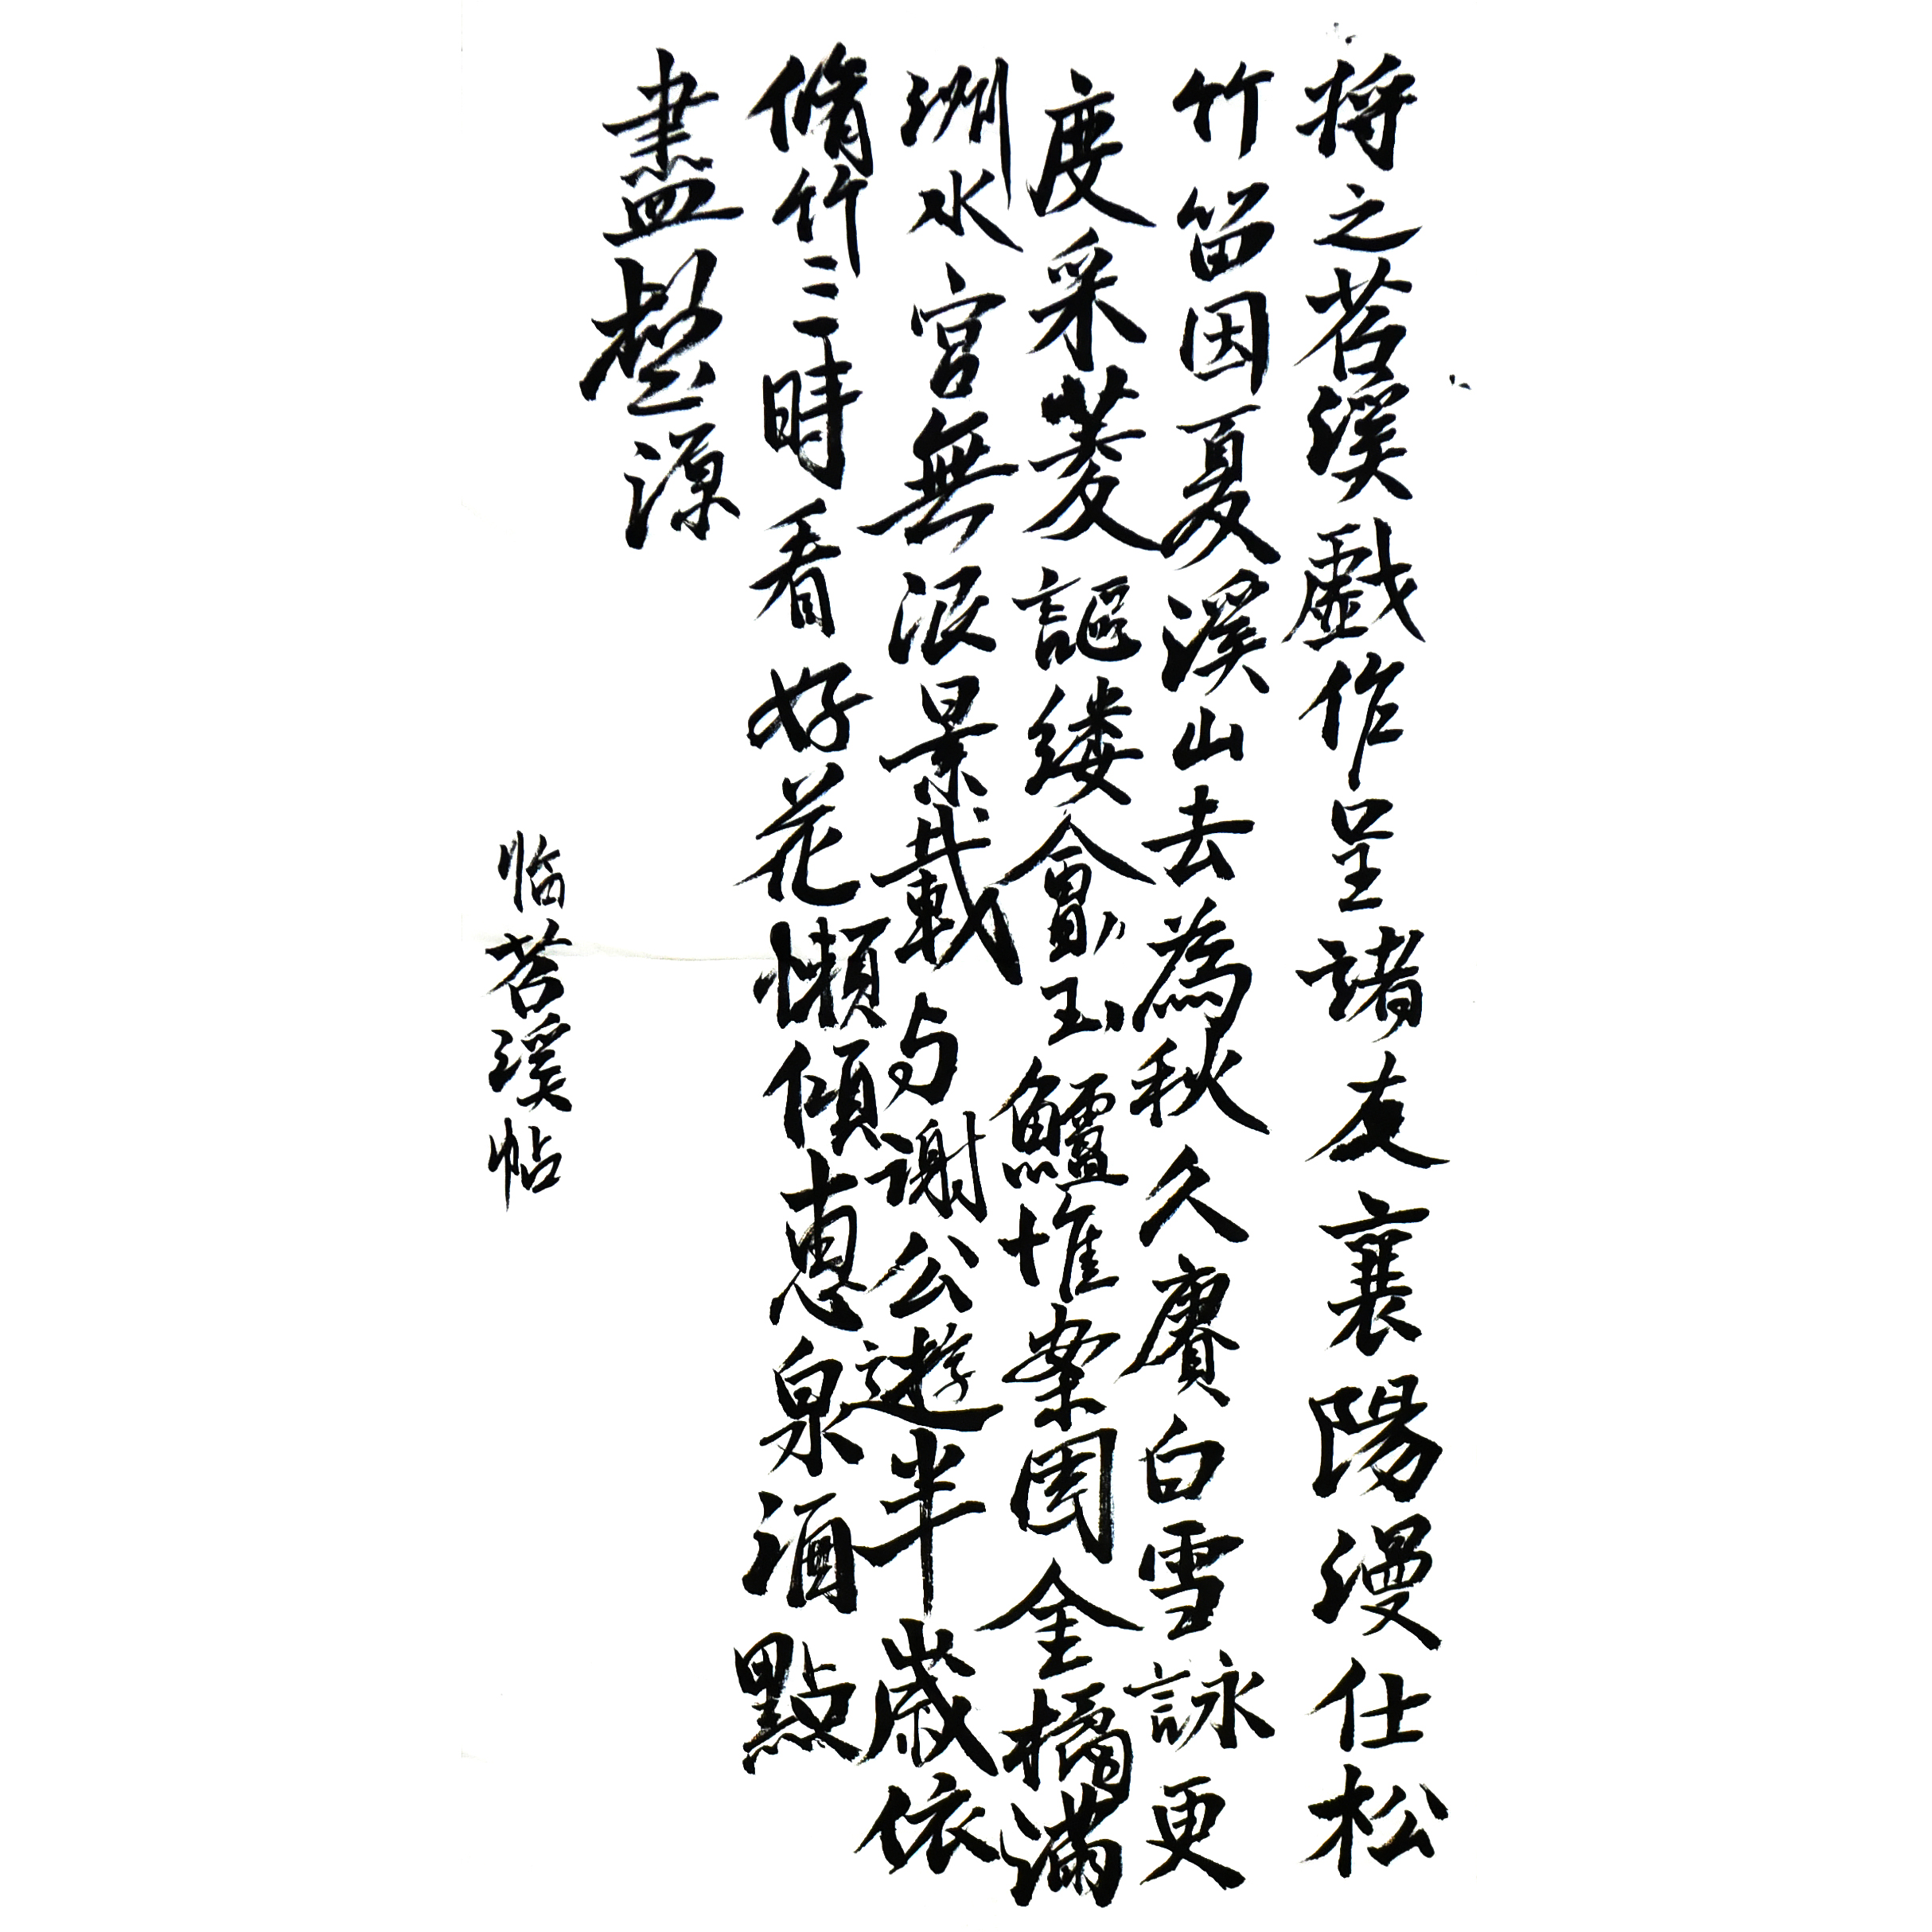 将之苕溪戲作呈諸友襄陽漫仕松
竹留因夏溪山去為秋久賡白雪詠更
度采菱謳缕會玉鱸堆案團金橘滿
洲水宮無限景載与謝公遊半歲依
脩竹三時看好花懶傾惠泉酒點
盡壑源
临苕溪帖